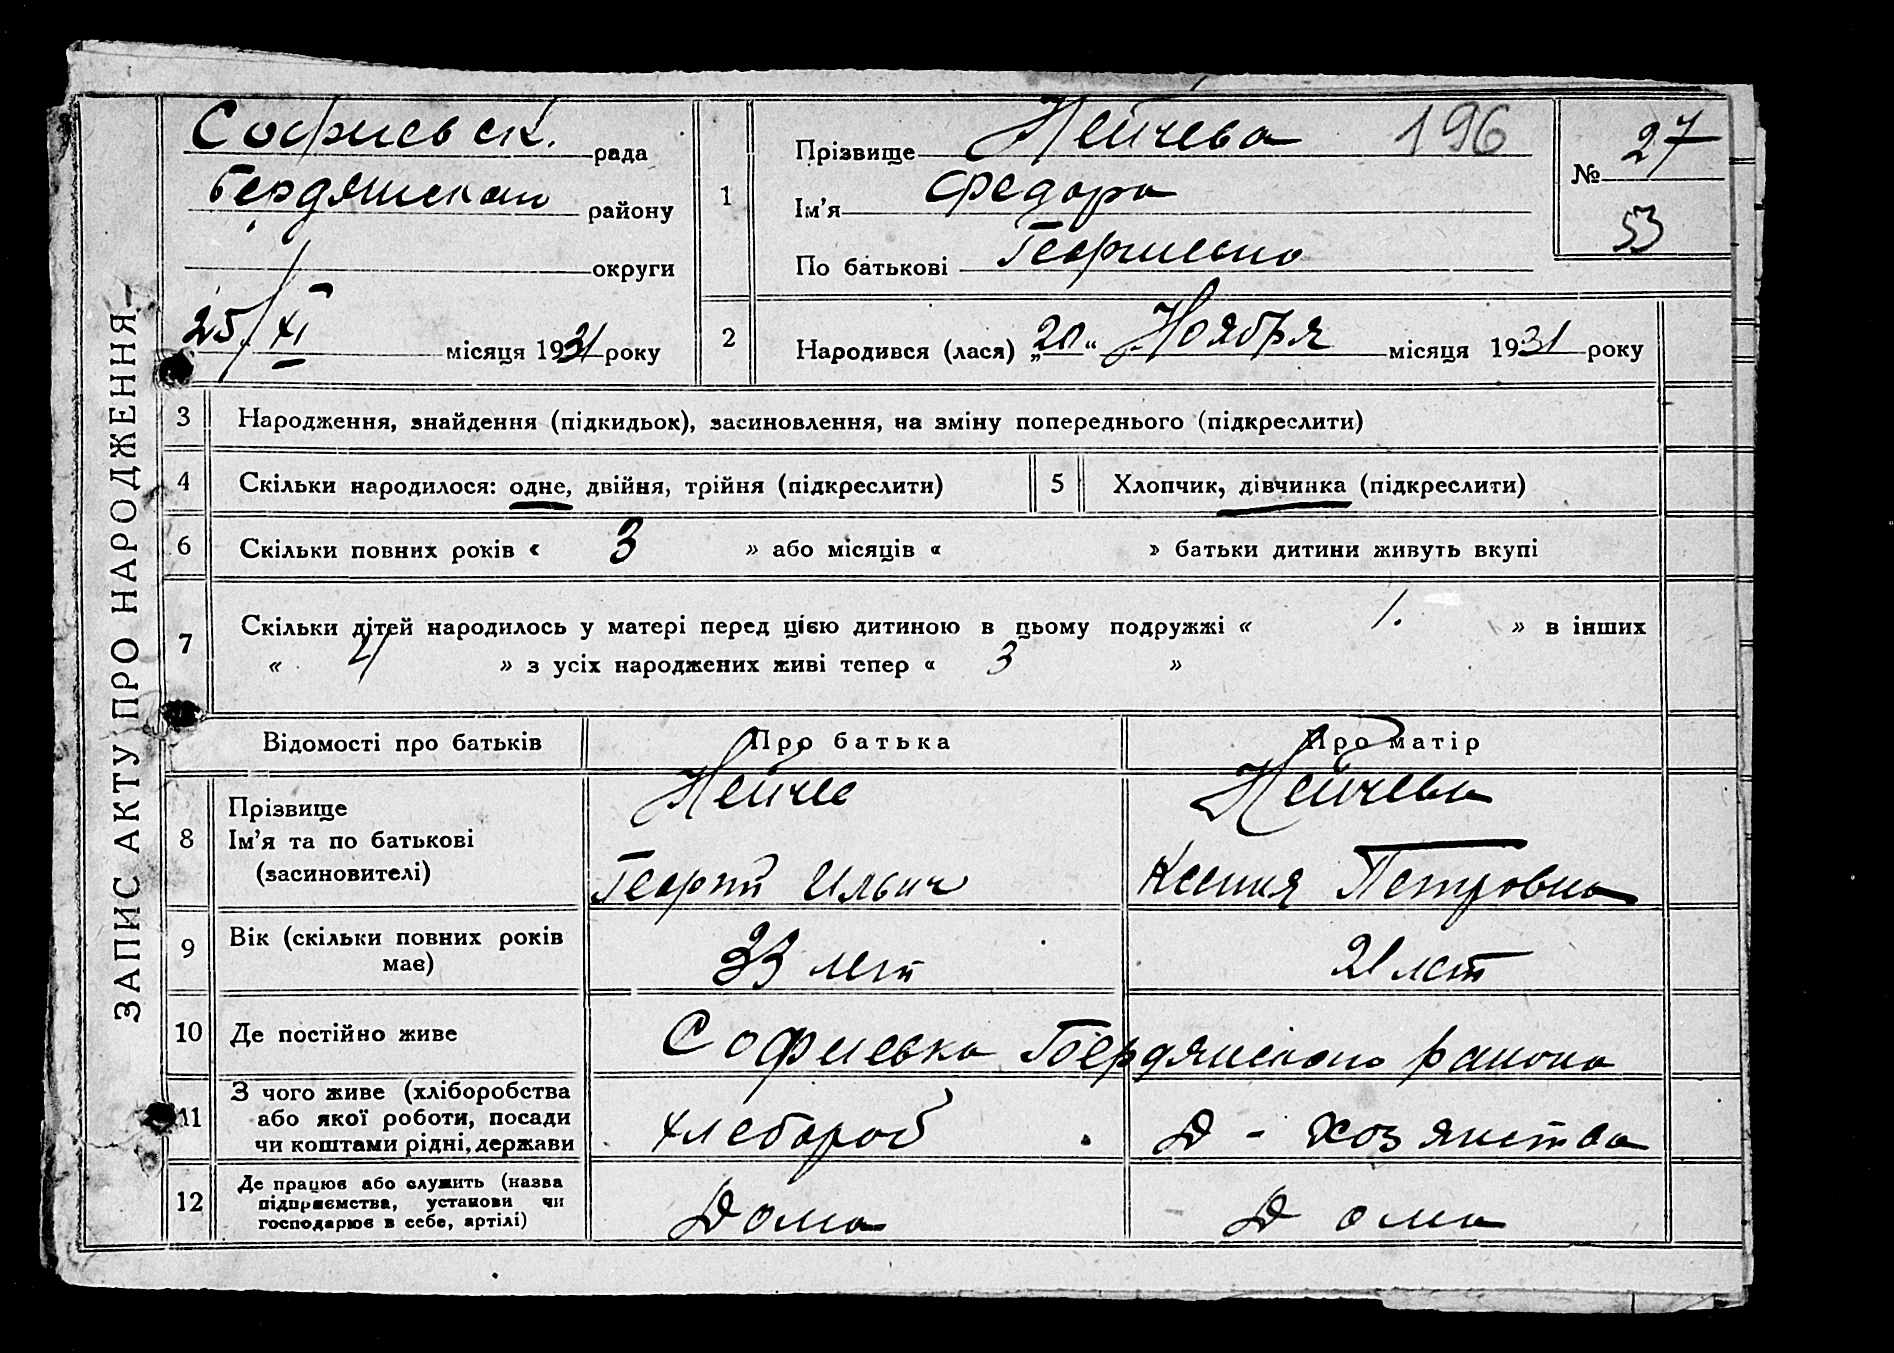 ЗАПИС АКТУ ПРО НАРОДЖЕННЯ
Софиевск. рада
Бердянский району
округи
25/XI місяця 1931 року
1
Прізвище Нейчева 196
Ім'я Федора
По батькові Георгиевна
№ 27
53
2
Народився (лася) „20“ Ноября місяця 1931 року
3 Народження, знайдення (підкидьок), засиновлення, на зміну попереднього (підкреслити)
4 Скільки народилося: одне, двійня, трійня (підкреслити)
5 Хлопчик, дівчинка (підкреслити)
6 Скільки повних років « 3 » або місяців « » батьки дитини живуть вкупі
7 Скільки дітей народилось у матері перед цією дитиною в цьому подружжі « 1. » в інших
« » з усіх народжених живі тепер « 3 »
Відомості про батьків Про батька Про матір
8 Прізвище
Ім'я та по батькові
(засиновителі)
Нейчев
Георгий Ильич
Нейчева
Ксения Петровна
9 Вік (скільки повних років
має)
33 лет
21 лет
10 Де постійно живе Софиевка Бердянского района
11 З чого живе (хліборобства
або якої роботи, посади
чи коштами рідні, держави
хлебороб
Д - хозяйства
12 Де працює або служить (назва
підприємства, установи чи
господарює в себе, артілі)
Дома
Дома